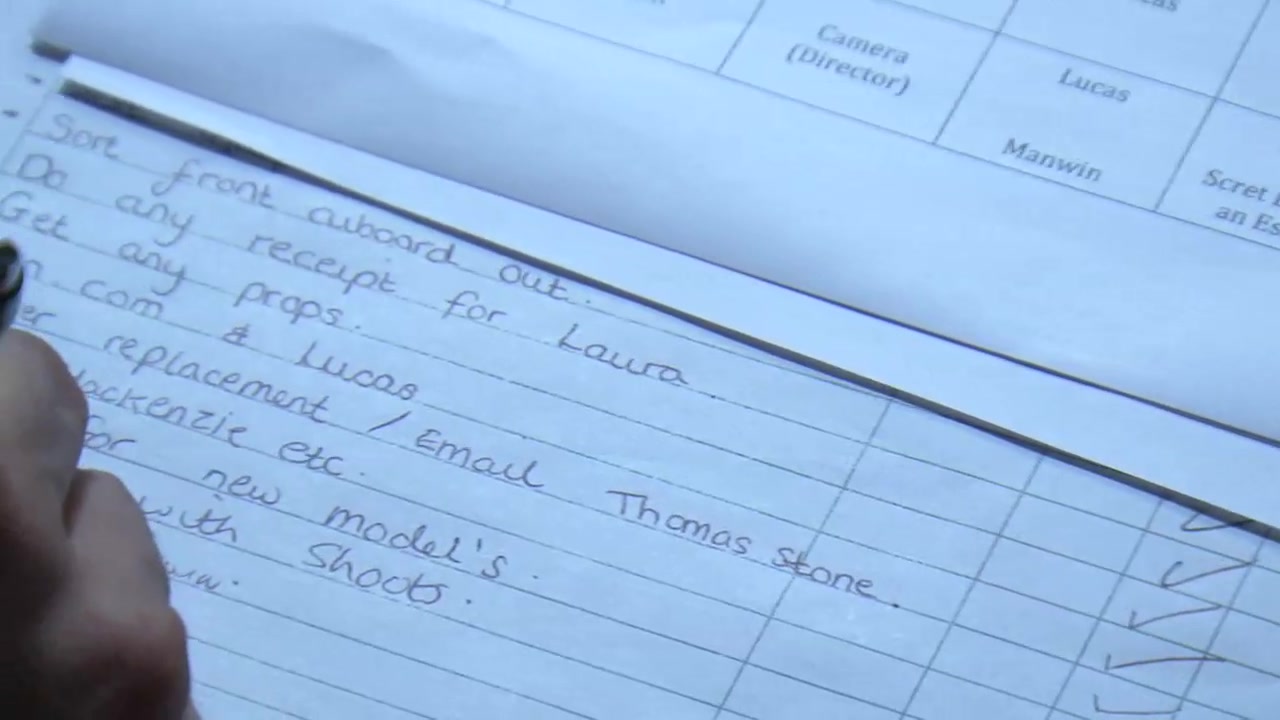 Camera
(Director)
Lucas
Manwin
Scret
an Es
Sort front cuboard out.
Do any receipt for Laura
Get any props.
n.com & Lucas
er replacement / Email Thomas Stone.
ackenzie etc.
for new model's.
with Shoots.